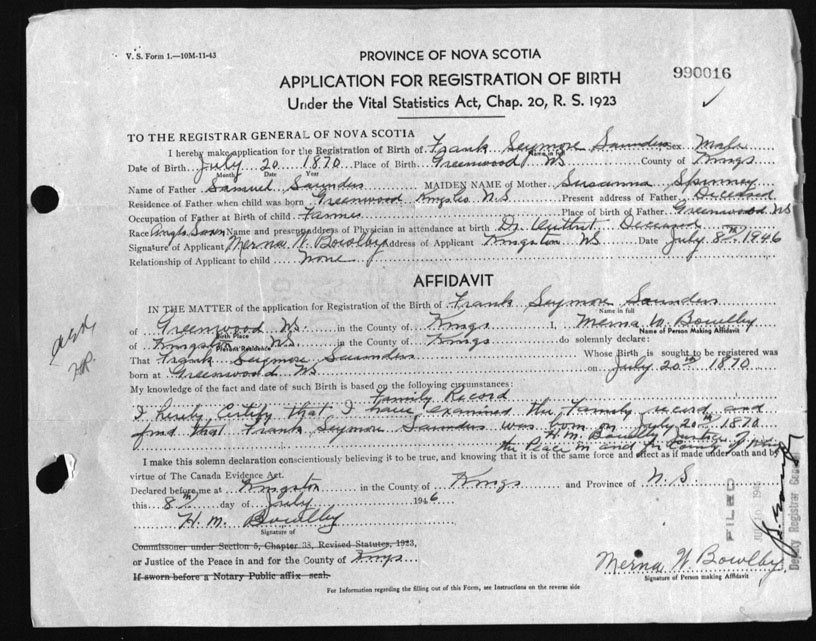 V. S. Form 1.—10M-11-43
PROVINCE OF NOVA SCOTIA
APPLICATION FOR REGISTRATION OF BIRTH
990016
Under the Vital Statistics Act, Chap. 20, R. S. 1923
TO THE REGISTRAR GENERAL OF NOVA SCOTIA
I hereby make application for the Registration of Birth of Frank Seymore Saunders Sex Male
Name in full
Date of Birth July 20 1870 Place of Birth Greenwood NS County of Kings
Month Date Year
Name of Father Samuel Saunders MAIDEN NAME of Mother Susanna Spinney
Residence of Father when child was born Greenwood Kings Co N.S Present address of Father Deceased
Occupation of Father at Birth of child Farmer Place of birth of Father Greenwood NS
Race Anglo Saxon Name and present address of Physician in attendance at birth Dr. Deceased
Signature of Applicant Merna W. Bowlby Address of Applicant Kingston NS Date July 8th 1946
Relationship of Applicant to child None
AFFIDAVIT
IN THE MATTER of the application for Registration of the Birth of Frank Seymore Saunders
Name in full
of Greenwood NS. in the County of Kings I, Merna W. Bowlby
Birth Place Name of Person Making Affidavit
of Kingston NS. in the County of Kings do solemnly declare:
Present Residence
That Frank Seymore Saunders Whose Birth is sought to be registered was
born at Greenwood NS on July 20th 1870
My knowledge of the fact and date of such Birth is based on the following circumstances:
Family Record
I hereby Certify that I have examined the Family record and
find that Frank Seymore Saunders was born on July 20th 1870
H. M. Bowlby Justice of
the Peace in and for County of
I make this solemn declaration conscientiously believing it to be true, and knowing that it is of the same force and effect as if made under oath and by
virtue of The Canada Evidence Act.
Declared before me at Kingston in the County of Kings and Province of N. S.
this 8th day of July 1946
H. M. Bowlby
Signature of
Commissioner under Section 5, Chapter 38, Revised Statutes, 1923,
or Justice of the Peace in and for the County of Kings
If sworn before a Notary Public affix seal.
Merna W. Bowlby
Signature of Person making Affidavit
For Information regarding the filling out of this Form, see Instructions on the reverse side
FILED
Deputy Registrar General